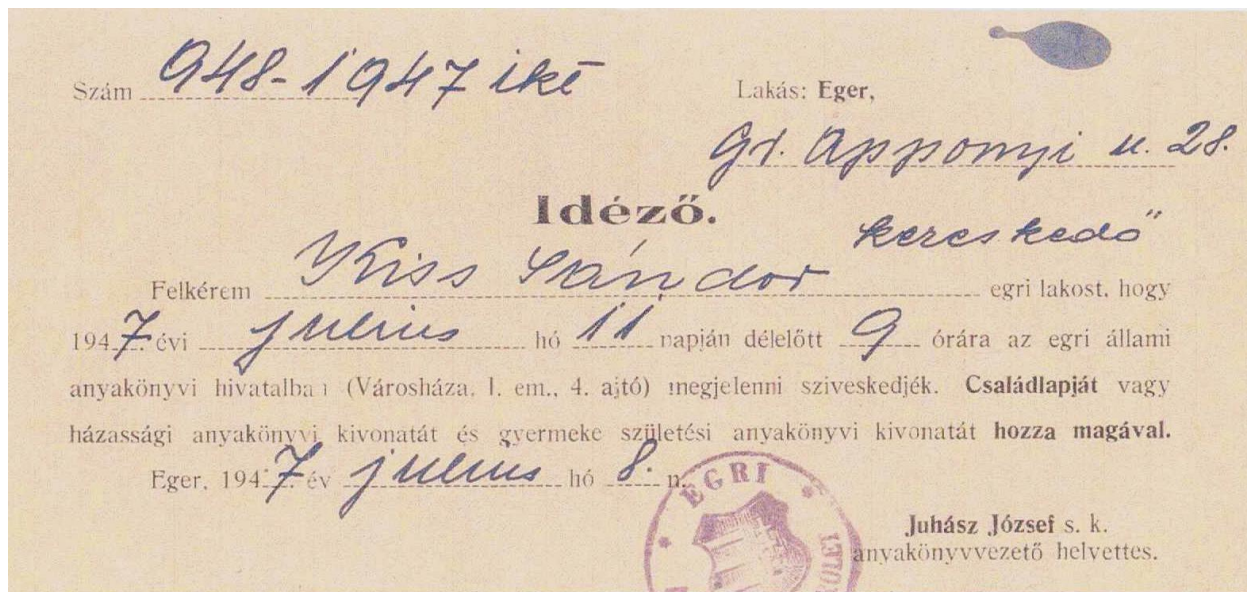 Szám 948-1947 ikt̄
Lakás: Eger,
Gr. Apponyi u. 28.
Idéző.
kereskedő
Felkérem Kiss Sándor egri lakost, hogy
1947 évi julius hó 11 napján délelőtt 9 órára az egri állami
anyakönyvi hivatalban (Városháza, I. em., 4. ajtó) megjelenni sziveskedjék. Családlapját vagy
házassági anyakönyvi kivonatát és gyermeke születési anyakönyvi kivonatát hozza magával.
Eger, 1947 év julius hó 8. n.
* EGRI *
Juhász József s. k.
anyakönyvvezető helyettes.